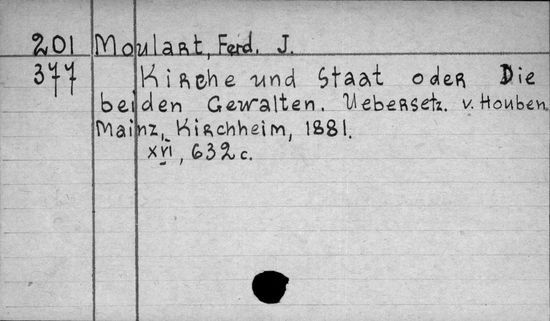 201 Moulart, Ferd. J.
377 Kirche und Staat oder Die
beiden Gewalten. Uebersetz. v. Houben.
Mainz, Kirchheim, 1881.
XVI, 632 c.